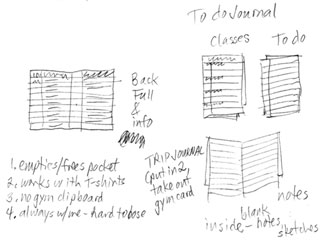 To do Journal
Classes
To do
Back
Full
&
info
1. empties/frees pocket
2. works with T-shirts
3. no gym clipboard
4. always w/me - hard to lose
TRIP JOURNAL
(put in 2,
take out
gym card
blank
inside - notes,
sketches
notes